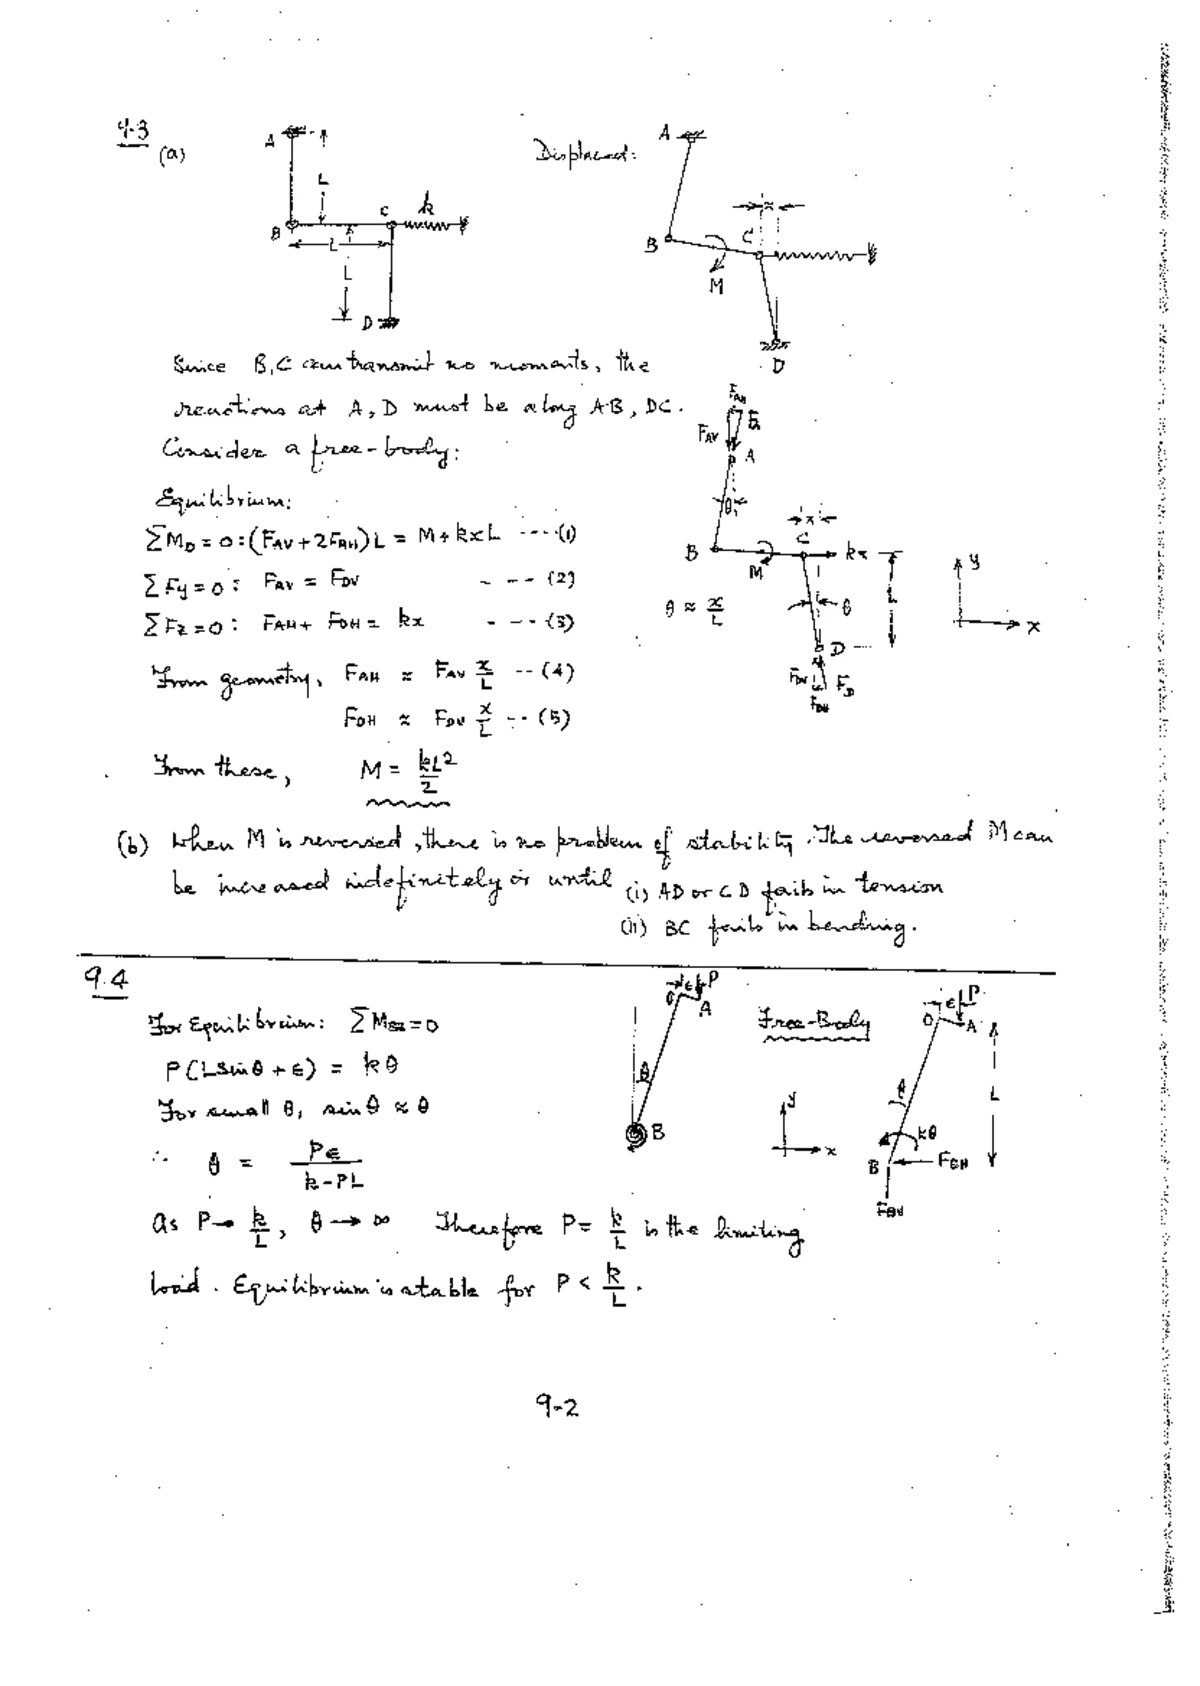 9.3
(a)
A
L
B
C
k
L
L
D
Displaced:
A
B
C
x
M
D
Since B, C can transmit no moments, the
reactions at A, D must be along AB, DC.
Consider a free-body:
Equilibrium:
ΣM_D = 0: (F_AV + 2F_AH) L = M + kxL ---- (1)
ΣFy = 0: F_AV = F_DV - - - (2)
ΣFx = 0: F_AH + F_DH = kx - - - (3)
From geometry, F_AH ≈ F_AV x/L -- (4)
F_DH ≈ F_DV x/L -- (5)
From these, M = kL²/2
F_AH
F_AV
F_A
A
θ
x
B
C
kx
M
L
θ ≈ x/L
θ
D
F_DV
F_D
F_DH
y
x
(b) When M is reversed, there is no problem of stability. The reversed M can
be increased indefinitely or until (i) AD or CD fails in tension
(ii) BC fails in bending.
9.4
For Equilibrium: ΣM_BZ = 0
P(L sin θ + ε) = kθ
For small θ, sin θ ≈ θ
∴ θ = Pε/(k-PL)
As P → k/L, θ → ∞ Therefore P = k/L is the limiting
load. Equilibrium is stable for P < k/L.
ε
P
O
A
θ
B
Free-Body
y
x
ε
P
O
A
θ
L
kθ
B
F_BH
F_BV
9-2